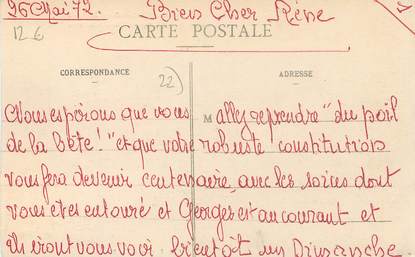 26 Mai 72. Bien Cher Réne
12 €
CARTE POSTALE
CORRESPONDANCE
ADRESSE
22)
Nous espérons que vous allez reprendre "du poil
M
de la bête!" et que votre robuste constitution
vous fera devenir centenaire, avec les soins dont
vous êtes entouré et Georges est au courant et
ils iront vous voir bientôt un Dimanche.